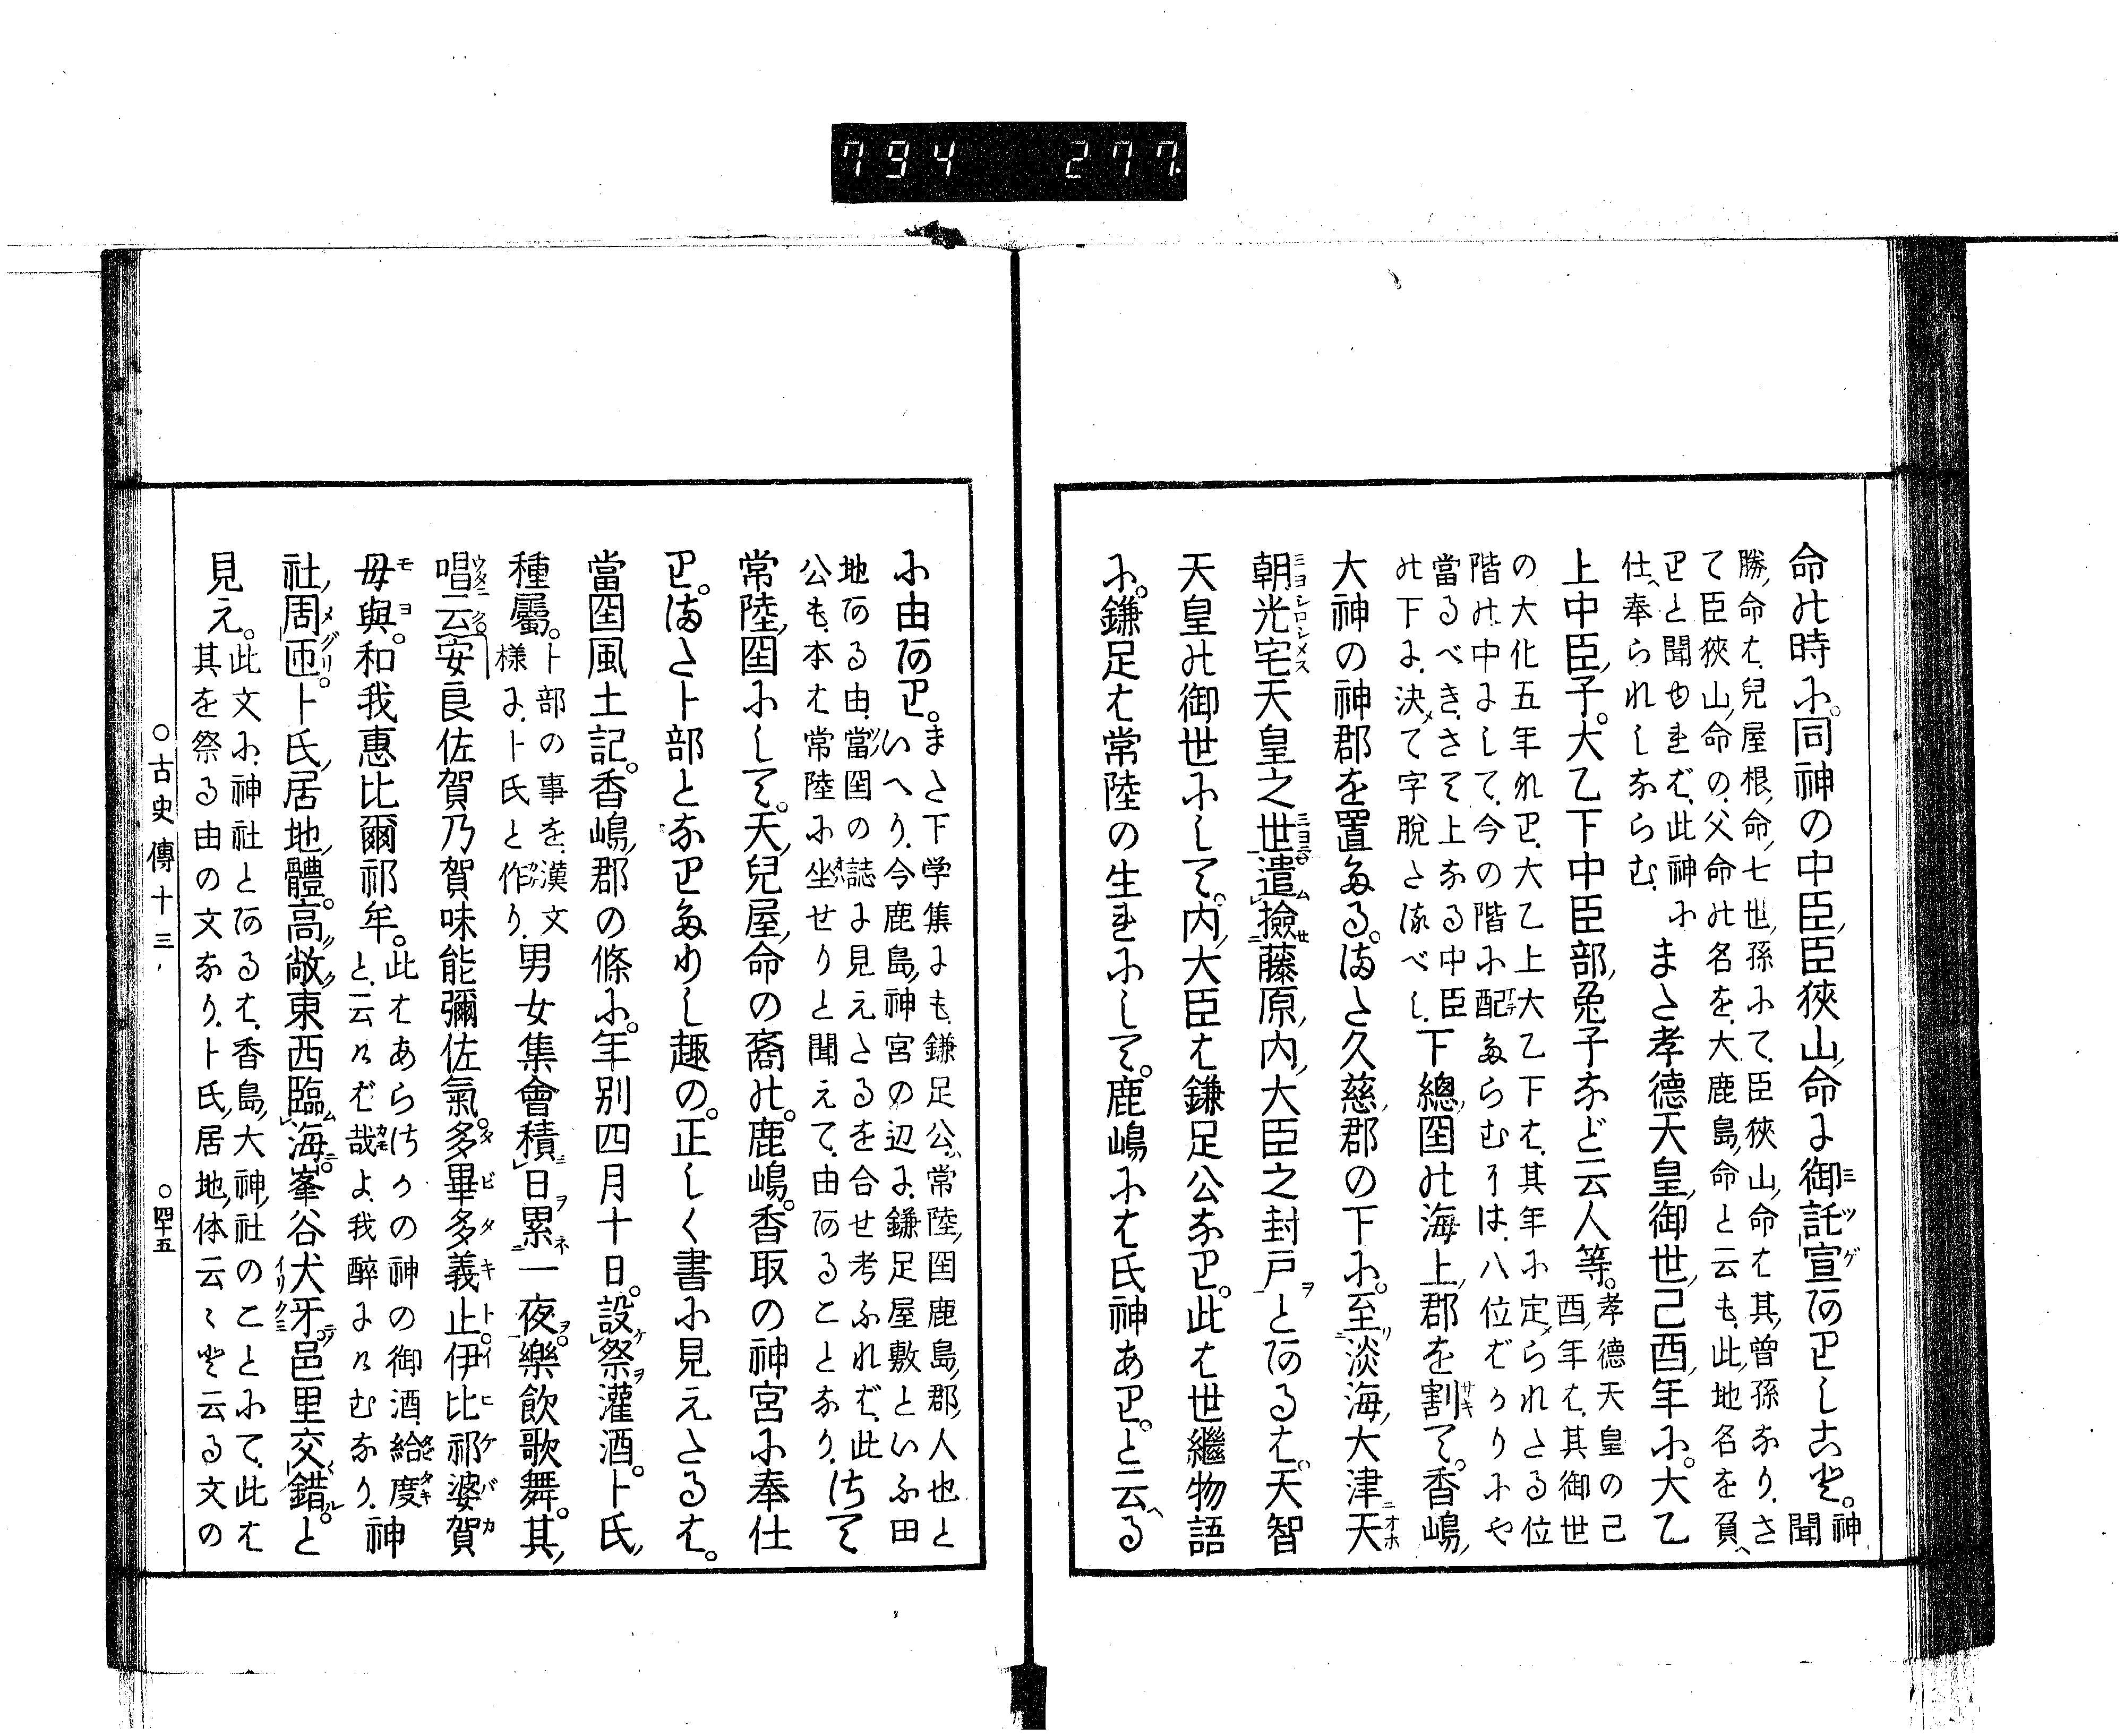 794 277
命の時に。同神の中臣、臣狹山、命に御託宣ありしこと。神聞
勝、命は、兒屋根、命、七世、孫にて、臣狹山、命は其、曾孫なり、さ
て臣狹山、命の、父命の名を、大鹿島、命と云も、此、地名を負へ
りと聞ゆれば、此神に
仕へ奉られしならむ、
また孝德天皇、御世、己酉、年に。大乙
上中臣、子。大乙下中臣部、兔子など云人等。
孝德天皇の己
酉、年は、其御世
の大化五年なり、大乙上大乙下は、其年に定られたる位
階の中にして、今の階に配たらむには、八位ばかりにや
當るべき、さて上なる中臣
の下に、決て字脫たるべし、
下總、国の海上、郡を割て。香嶋、
大神の神郡を置たる。また久慈、郡の下に。至淡海、大津天
朝光宅天皇之世遣撿藤原、内、大臣之封戸とあるは。天智
天皇の御世にして。内、大臣は鎌足公なり。此は世繼物語
に。鎌足は常陸の生れにして。鹿嶋には氏神あり。と云へる
に由あり。
また下学集にも、鎌足公、常陸、国鹿島、郡、人也と
いへり、今鹿島、神宮の辺に、鎌足屋敷といふ田
地ある由、當国の誌に見えたるを合せ考ふれば、此
公も、本は常陸に坐せりと聞えて、由あることなり、
さて
常陸、国にして。天、兒屋、命の裔の。鹿嶋。香取の神宮に奉仕
り。また卜部となりたりし趣の。正しく書に見えたるは。
當国風土記。香嶋、郡の條に。年别四月十日。設祭灌酒。卜氏、
種屬。
卜部の事を、漢文
樣に、卜氏と作り、
男女集會積日累一夜。樂飲歌舞。其、
唱云。安良佐賀乃賀味能彌佐氣。多畢多義止。伊比祁婆賀
母與。和我惠比爾祁牟。
此はあらさかの神の御酒、給度
と、云ければ哉よ、我醉にけむなり、
神
社、周匝。卜氏、居地、體。高敞。東西臨海。峯谷犬牙。邑里交錯。と
見え。
此文に、神社とあるは、香島、大神、社のことにて、此は
其を祭る由の文なり、卜氏、居地、体云々と云る文の
○古史傳十三
○四十五